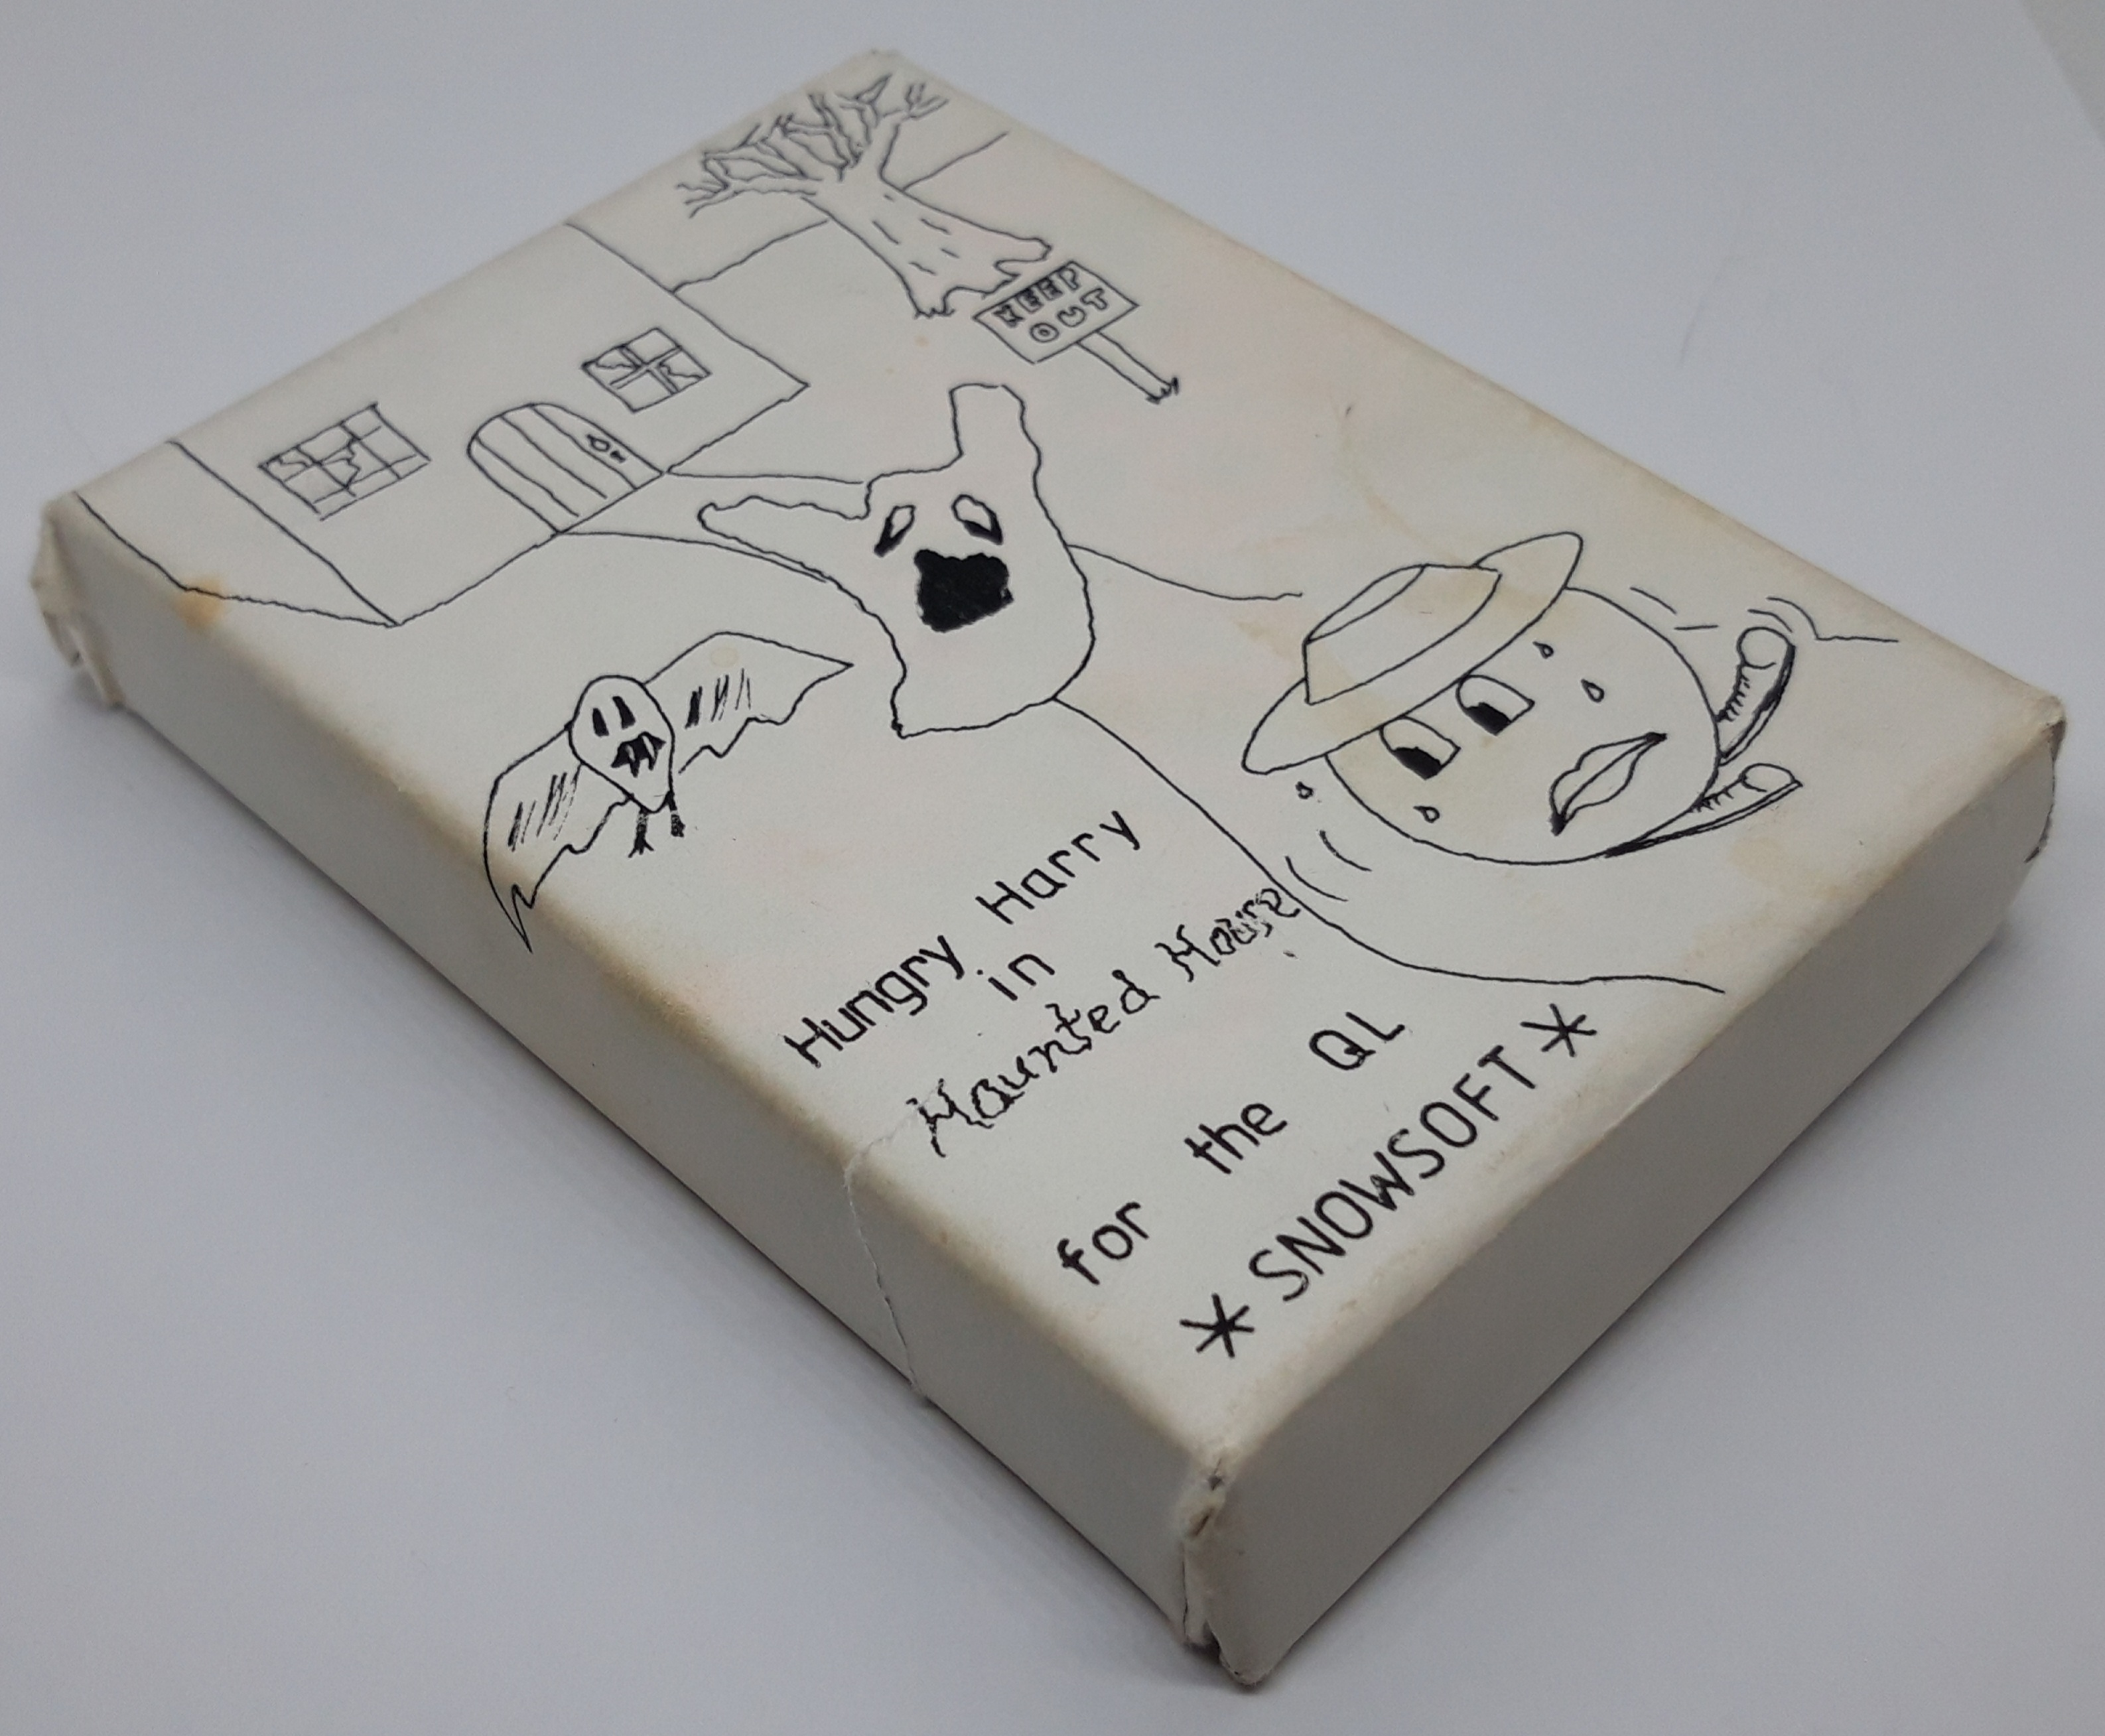 KEEP
OUT
Hungry Harry
in
Haunted House
for the QL
* SNOWSOFT *